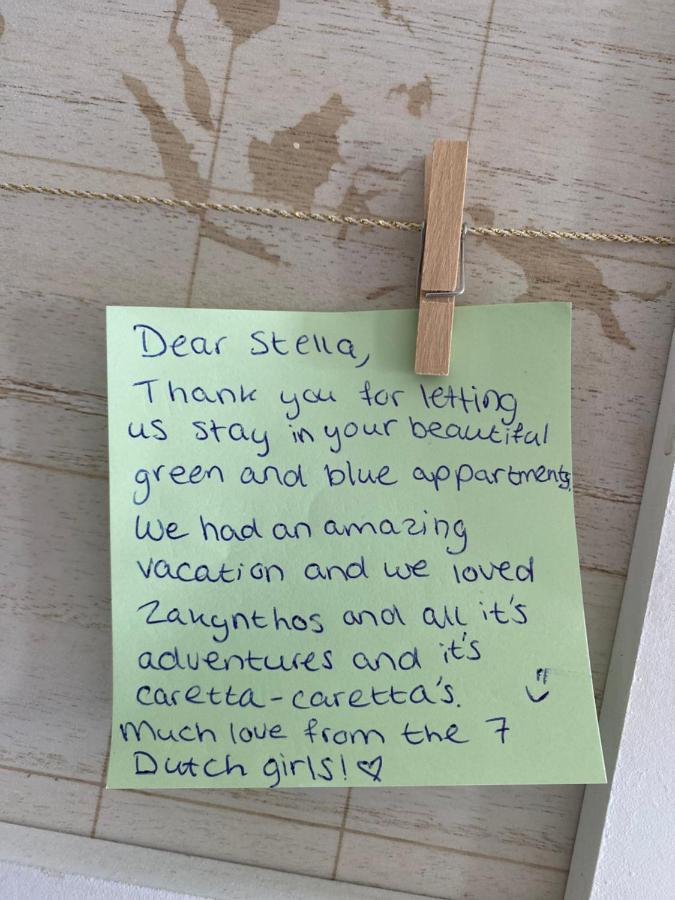 Dear Stella,
Thank you for letting
us stay in your beautiful
green and blue appartments.
We had an amazing
vacation and we loved
Zakynthos and all it's
adventures and it's
caretta-caretta's.
Much love from the 7
Dutch girls! ♡